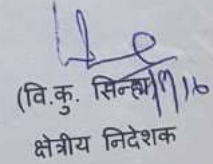 (वि.कु. सिन्हा)
क्षेत्रीय निदेशक